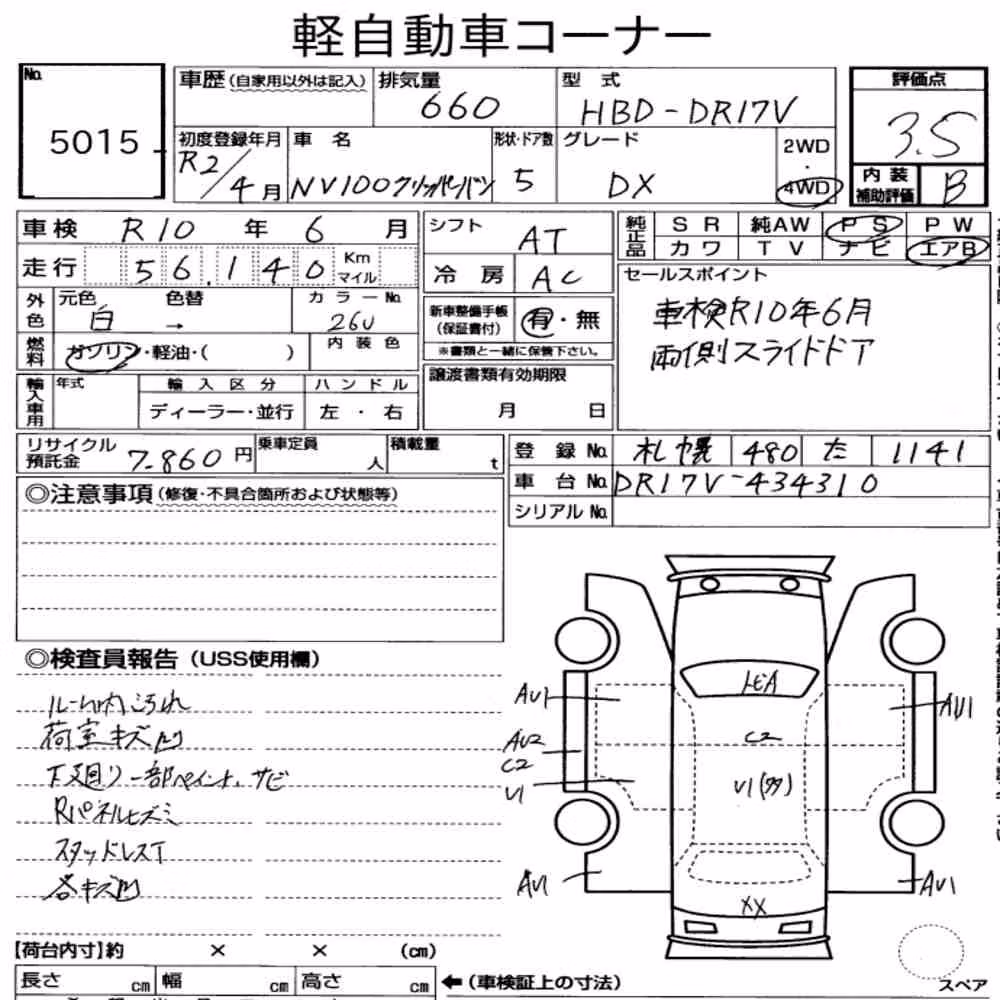 軽自動車コーナー
No. 5015
車歴(自家用以外は記入) 排気量 660 型式 HBD-DR17V
初度登録年月 R2/4月 車名 NV100クリッパーバン 形状・ドア数 5 グレード DX 2WD・4WD
評価点 3.5
内装補助評価 B
車検 R10年6月
走行 56,140 Km マイル
外色 元色 白 色替 → カラーNo. 26U
燃料 ガソリン・軽油・( ) 内装色
輸入車用 年式 輸入区分 ディーラー・並行 ハンドル 左・右
シフト AT
冷房 AC
新車整備手帳(保証書付) 有・無
※書類と一緒に保管下さい。
譲渡書類有効期限 月 日
純正品 SR 純AW PS PW
カワ TV ナビ エアB
セールスポイント
車検R10年6月
両側スライドドア
リサイクル預託金 7,860円 乗車定員 人 積載量 t
登録No. 札幌 480 た 1141
車台No. DR17V-434310
シリアルNo.
◎注意事項(修復・不具合箇所および状態等)
◎検査員報告(USS使用欄)
ルーム内汚れ
荷室キズ凹
下廻り一部ペイント、サビ
Rパネルヒズミ
スタッドレスT
各キズ凹
AU1
AU2
C2
U1
AU1
トビA
C2
U1(多)
XX
AU1
AU1
スペア
【荷台内寸】約 × × (cm)
長さ cm 幅 cm 高さ cm ←(車検証上の寸法)